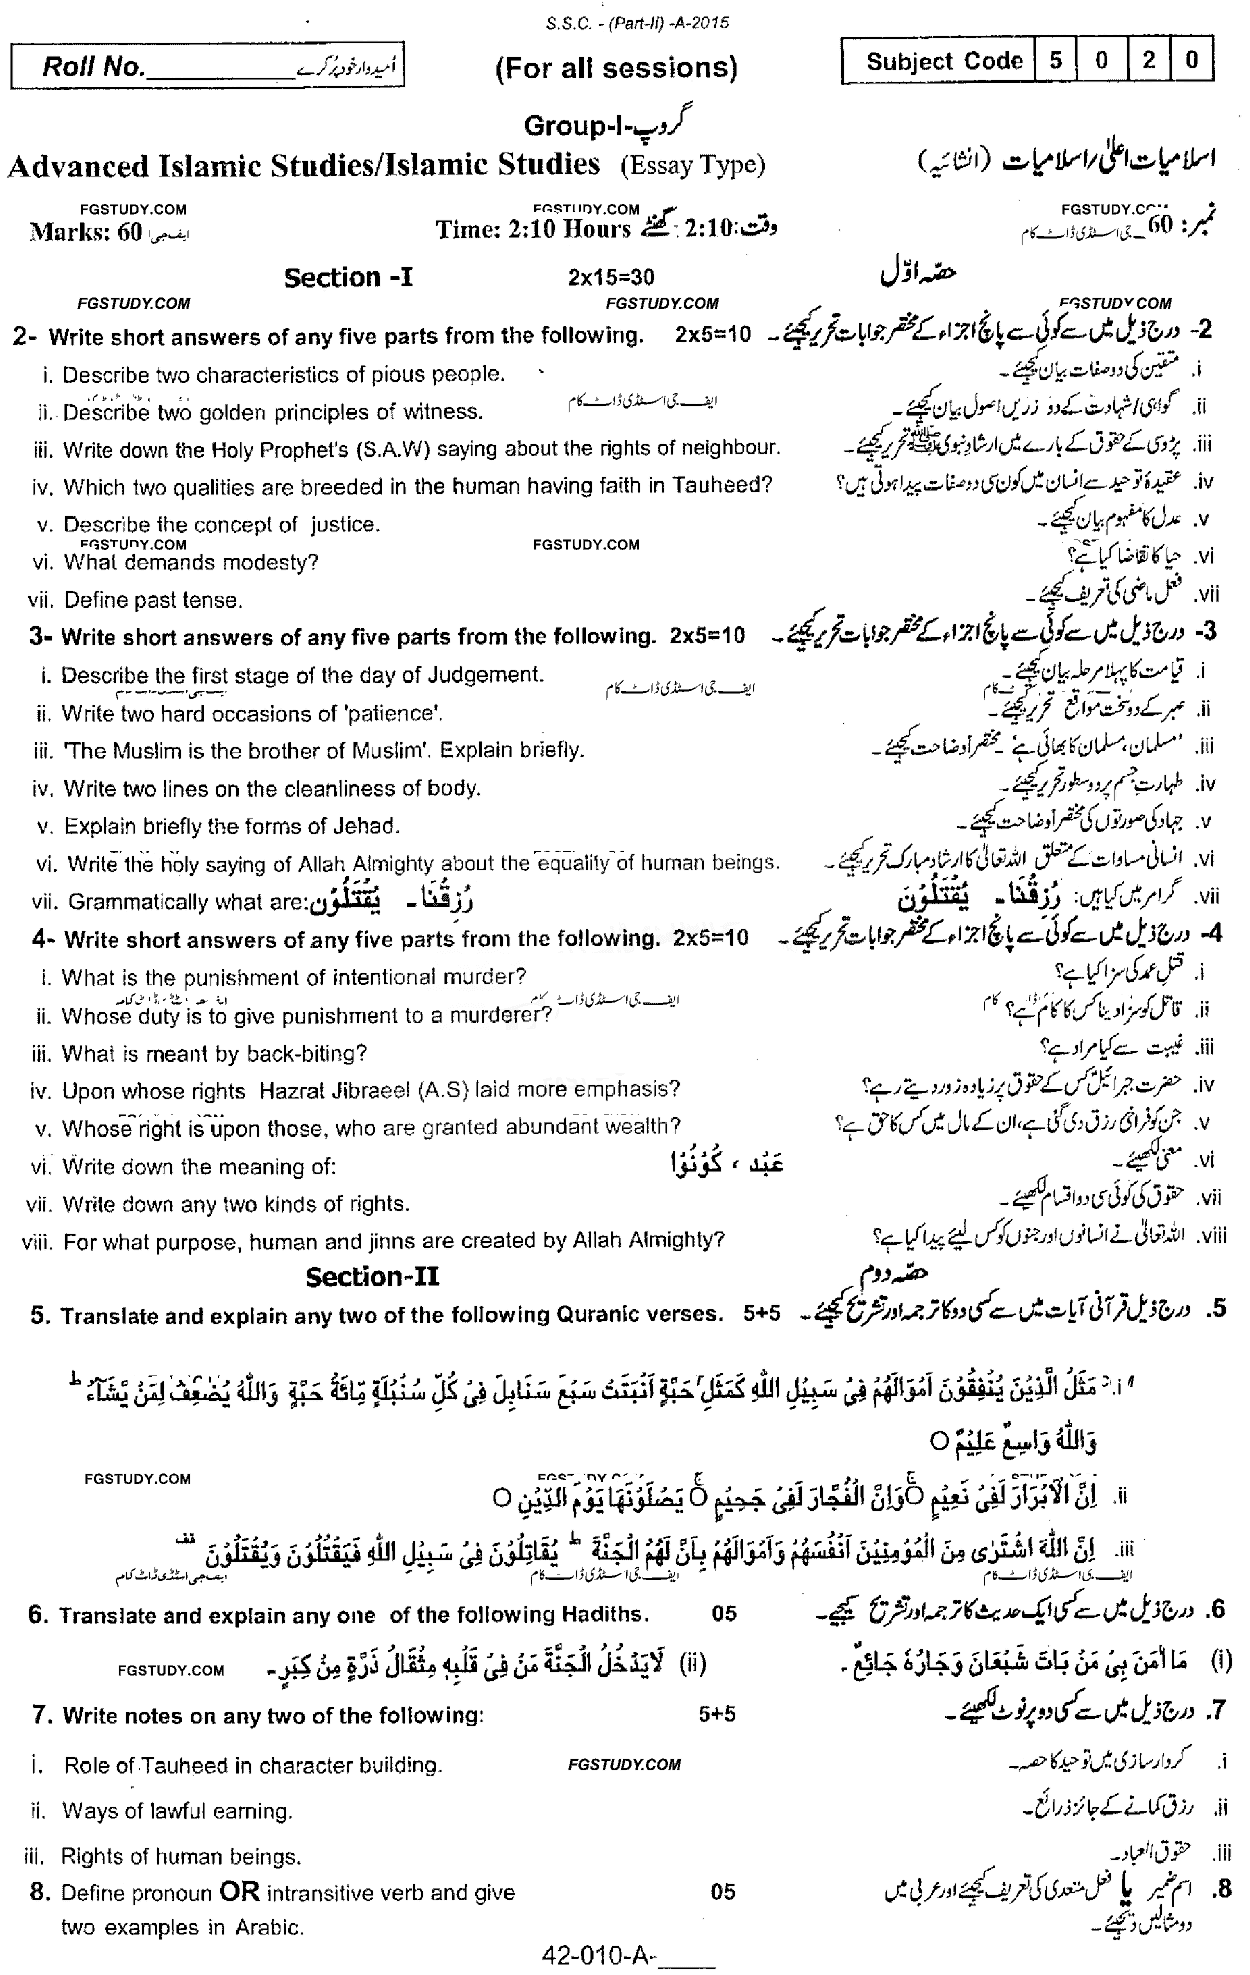 S.S.C. - (Part-II) -A-2015
Roll No.___________ اُمیدوار خود پُر کرے
(For all sessions)
Subject Code 5 0 2 0
Group-I-گروپ
Advanced Islamic Studies/Islamic Studies (Essay Type) اسلامیات اعلیٰ/اسلامیات (انشائیہ)
FGSTUDY.COM FGSTUDY.COM FGSTUDY.COM
Marks: 60 Time: 2:10 Hours وقت: 2:10 گھنٹے نمبر: 60
Section -I 2x15=30 حصّہ اوّل
FGSTUDY.COM FGSTUDY.COM FGSTUDY.COM
2- Write short answers of any five parts from the following. 2x5=10 2- درج ذیل میں سے کوئی سے پانچ اجزاء کے مختصر جوابات تحریر کیجئے۔
i. Describe two characteristics of pious people. i. متقین کی دو صفات بیان کیجئے۔
ii. Describe two golden principles of witness. ایف جی اسٹڈی ڈاٹ کام ii. گواہی/شہادت کے دو زریں اصول بیان کیجئے۔
iii. Write down the Holy Prophet's (S.A.W) saying about the rights of neighbour. iii. پڑوسی کے حقوق کے بارے میں ارشاد نبوی ﷺ تحریر کیجئے۔
iv. Which two qualities are breeded in the human having faith in Tauheed? iv. عقیدۂ توحید سے انسان میں کون سی دو صفات پیدا ہوتی ہیں؟
v. Describe the concept of justice. v. عدل کا مفہوم بیان کیجئے۔
FGSTUDY.COM FGSTUDY.COM
vi. What demands modesty? vi. حیا کا تقاضا کیا ہے؟
vii. Define past tense. vii. فعل ماضی کی تعریف کیجئے۔
3- Write short answers of any five parts from the following. 2x5=10 3- درج ذیل میں سے کوئی سے پانچ اجزاء کے مختصر جوابات تحریر کیجئے۔
i. Describe the first stage of the day of Judgement. i. قیامت کا پہلا مرحلہ بیان کیجئے۔
ایف جی اسٹڈی ڈاٹ کام
ii. Write two hard occasions of 'patience'. ii. صبر کے دو سخت مواقع تحریر کیجئے۔
iii. 'The Muslim is the brother of Muslim'. Explain briefly. iii. 'مسلمان، مسلمان کا بھائی ہے' مختصراً وضاحت کیجئے۔
iv. Write two lines on the cleanliness of body. iv. طہارتِ جسم پر دو سطور تحریر کیجئے۔
v. Explain briefly the forms of Jehad. v. جہاد کی صورتوں کی مختصراً وضاحت کیجئے۔
vi. Write the holy saying of Allah Almighty about the equality of human beings. vi. انسانی مساوات کے متعلق اللہ تعالیٰ کا ارشاد مبارک تحریر کیجئے۔
vii. Grammatically what are: رُزِقْنَا۔ يُقْتَلُوْن vii. گرامر میں کیا ہیں: رُزِقْنَا۔ يُقْتَلُوْنَ
4- Write short answers of any five parts from the following. 2x5=10 4- درج ذیل میں سے کوئی سے پانچ اجزاء کے مختصر جوابات تحریر کیجئے۔
i. What is the punishment of intentional murder? i. قتلِ عمد کی سزا کیا ہے؟
ii. Whose duty is to give punishment to a murderer? ایف جی اسٹڈی ڈاٹ کام ii. قاتل کو سزا دینا کس کا کام ہے؟
iii. What is meant by back-biting? iii. غیبت سے کیا مراد ہے؟
iv. Upon whose rights Hazrat Jibraeel (A.S) laid more emphasis? iv. حضرت جبرائیلؑ کس کے حقوق پر زیادہ زور دیتے رہے؟
v. Whose right is upon those, who are granted abundant wealth? v. جن کو فراخی رزق دی گئی ہے، ان کے مال میں کس کا حق ہے؟
vi. Write down the meaning of: عَبْد ، كُوْنُوْا vi. معنی لکھیئے۔
vii. Write down any two kinds of rights. vii. حقوق کی کوئی سی دو اقسام لکھیئے۔
viii. For what purpose, human and jinns are created by Allah Almighty? viii. اللہ تعالیٰ نے انسانوں اور جنوں کو کس لیئے پیدا کیا ہے؟
Section-II حصّہ دوم
5. Translate and explain any two of the following Quranic verses. 5+5 5. درج ذیل قرآنی آیات میں سے کسی دو کا ترجمہ اور تشریح کیجئے۔
i. مَثَلُ الَّذِيْنَ يُنْفِقُوْنَ اَمْوَالَهُمْ فِيْ سَبِيْلِ اللّٰهِ كَمَثَلِ حَبَّةٍ اَنْبَتَتْ سَبْعَ سَنَابِلَ فِيْ كُلِّ سُنْبُلَةٍ مِّائَةُ حَبَّةٍ وَاللّٰهُ يُضٰعِفُ لِمَنْ يَّشَآءُ ط
وَاللّٰهُ وَاسِعٌ عَلِيْمٌ O
FGSTUDY.COM
ii. اِنَّ الْاَبْرَارَ لَفِيْ نَعِيْمٍ O وَاِنَّ الْفُجَّارَ لَفِيْ جَحِيْمٍ O يَصْلَوْنَهَا يَوْمَ الدِّيْنِ O
iii. اِنَّ اللّٰهَ اشْتَرٰى مِنَ الْمُؤْمِنِيْنَ اَنْفُسَهُمْ وَاَمْوَالَهُمْ بِاَنَّ لَهُمُ الْجَنَّةَ ط يُقَاتِلُوْنَ فِيْ سَبِيْلِ اللّٰهِ فَيَقْتُلُوْنَ وَيُقْتَلُوْنَ قف
ایف جی اسٹڈی ڈاٹ کام ایف جی اسٹڈی ڈاٹ کام ایف جی اسٹڈی ڈاٹ کام
6. Translate and explain any one of the following Hadiths. 05 6. درج ذیل میں سے کسی ایک حدیث کا ترجمہ اور تشریح کیجیے۔
(i) مَا اٰمَنَ بِيْ مَنْ بَاتَ شَبْعَانَ وَجَارُهٗ جَائِعٌ۔ (ii) لَا يَدْخُلُ الْجَنَّةَ مَنْ فِيْ قَلْبِهٖ مِثْقَالُ ذَرَّةٍ مِنْ كِبَرٍ۔ FGSTUDY.COM
7. Write notes on any two of the following: 5+5 7. درج ذیل میں سے کسی دو پر نوٹ لکھیئے۔
i. Role of Tauheed in character building. FGSTUDY.COM i. کردار سازی میں توحید کا حصہ۔
ii. Ways of lawful earning. ii. رزق کمانے کے جائز ذرائع۔
iii. Rights of human beings. iii. حقوق العباد۔
8. Define pronoun OR intransitive verb and give 05 8. اسم ضمیر یا فعل متعدی کی تعریف کیجئے اور عربی میں
two examples in Arabic. دو مثالیں دیجئے۔
42-010-A-____